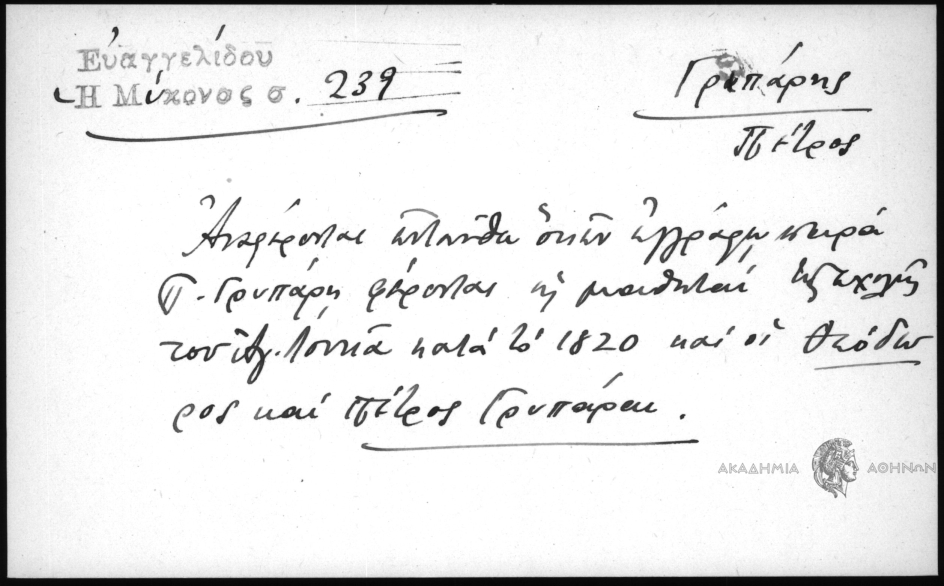 Εὐαγγελίδου
Ἡ Μύκονος σ. 239
Γρυπάρης
Πέτρος
Ἀναφέρονται ἐνταῦθα ὅτι ἐγγράφῳ παρὰ
Π. Γρυπάρη φέρονται ὡς μαθηταί τῆς σχολῆς
τοῦ Ἁγ. Λουκᾶ κατά τό 1820 καί οἱ Θεόδω
ρος καί Πέτρος Γρυπάραι.
ΑΚΑΔΗΜΙΑ ΑΘΗΝΩΝ